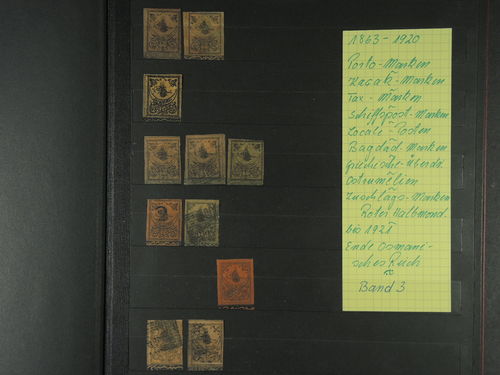 1863-1920
Porto-Marken
Kagatā-Marken
Tax-Marken
Schiffspost-Marken
Locale-Posten
Bagdad-Marken
griechische-Überdr.
Ostrumelien
Zuschlags-Marken
Roter Halbmond
bis 1921
Ende Osmani-
sches Reich
Band 3